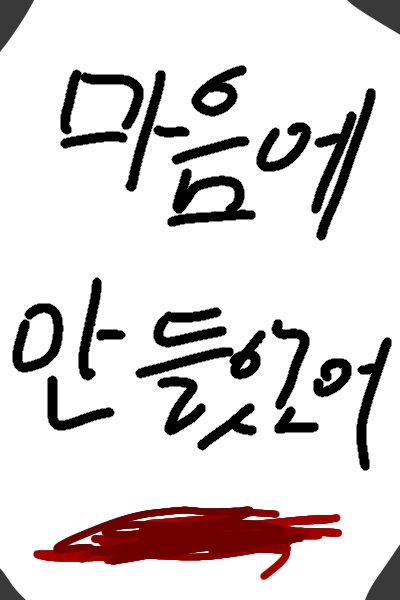 마음에
안 들었어